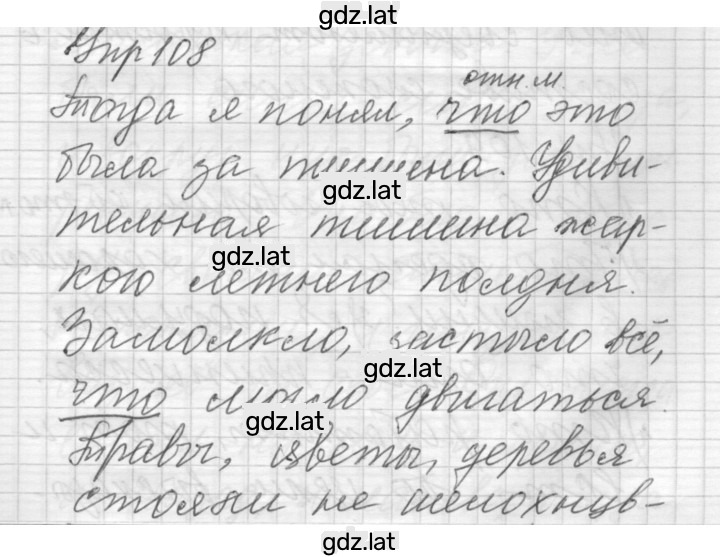 gdz.lat
Упр 108
отн. м.
Тогда я понял, что это
была за тишина. Удиви-
gdz.lat
тельная тишина жар-
gdz.lat
кого летнего полдня.
Замолкло, застыло всё,
gdz.lat
что могло двигаться.
gdz.lat
Травы, цветы, деревья
стояли не шелохнув-
gdz.lat